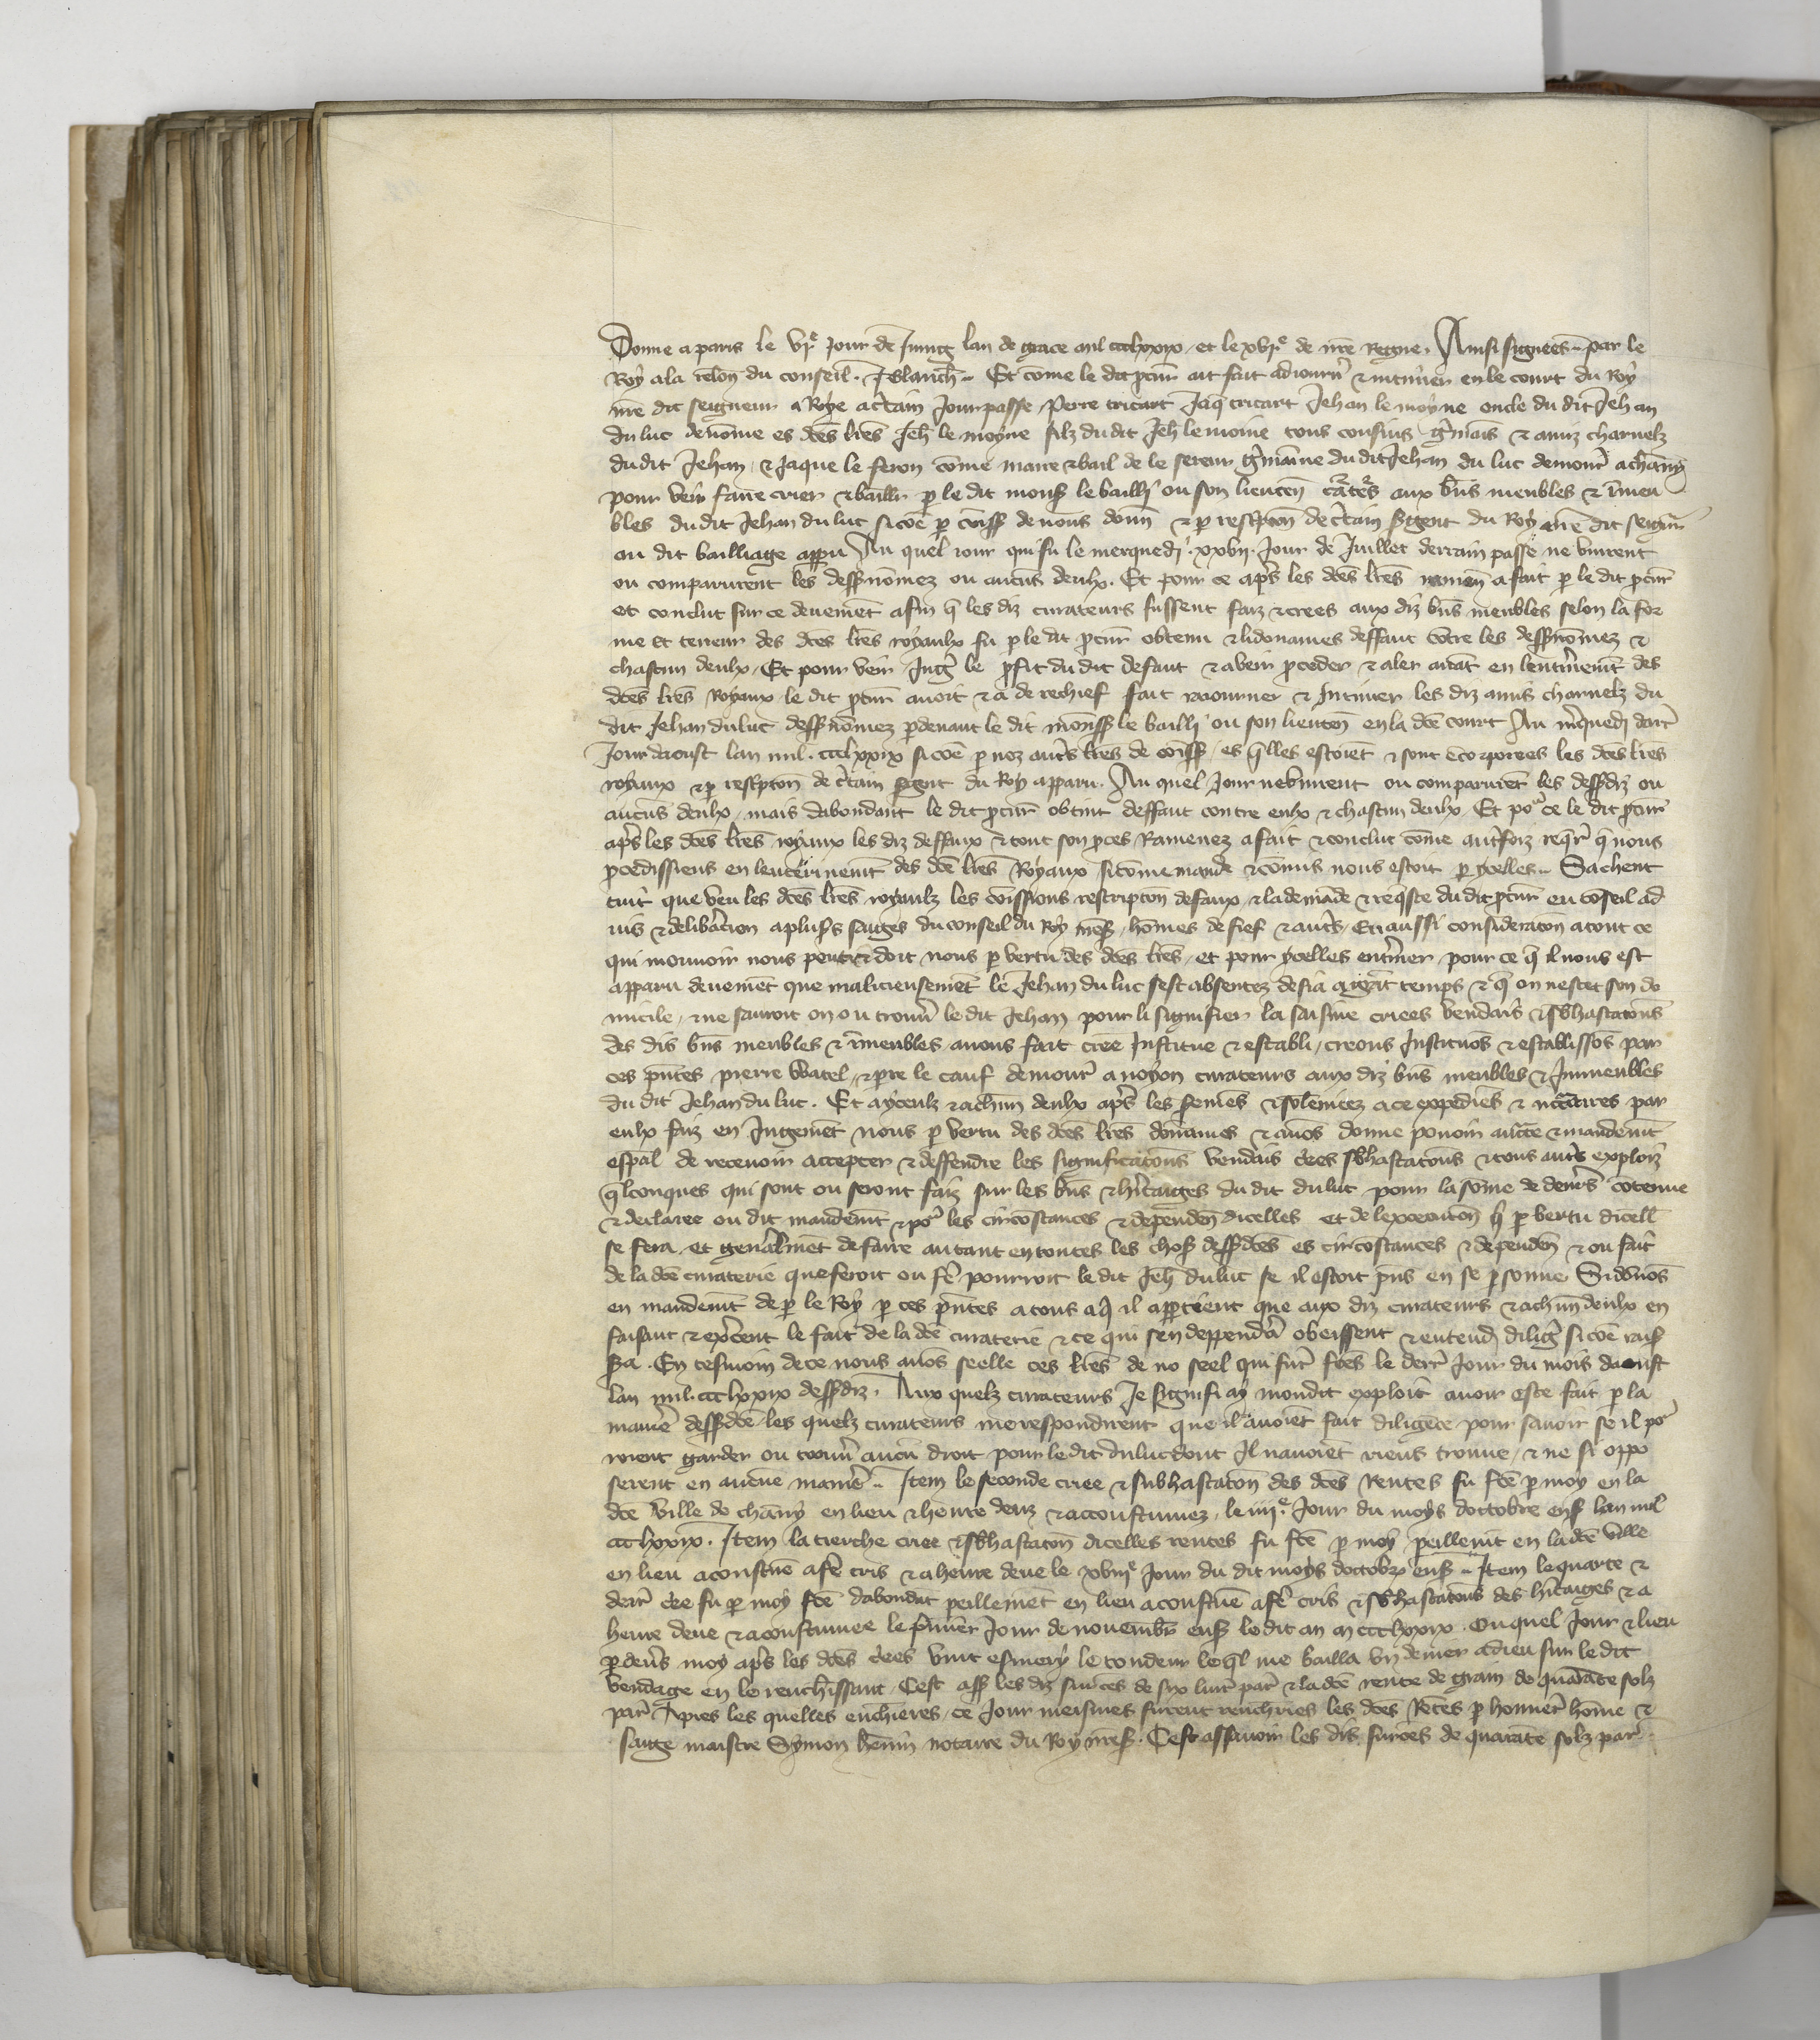 Donne a paris le vj.e jour de Juing lan de grace mil ccclxxix. et le xvj.e de nre Regne. Ainsi signees. par le
Roy a la relon du conseil. J. blanch. Et come le dit pcur ait fait adiourn & intimer en le court du Roy
nre dit seigneur a Roye a ctain Jour passe. Pierre tricart Jaq tricart Jehan le moyne oncle du dit Jehan
du luc denome es dces lres Jeh le moyne filz du dit Jeh le moine tous cousins gmais & amiz charnelz
du dit Jehan. & Jaque le feron come mari & bail de le sereur gmaine du dit Jehan du luc demour a chany
pour veir faire crier & baillr p le dit mons le bailli ou son lieuten aux bns meubles & imeu
bles du dit Jehan du luc si coe p comiss de nous donn & p rescpton de ctain sgent du Roy nre dit seigneur
ou dit bailliage appu Au quel iour qui fu le merquedi. xxvij. Jour de Juillet derrain passe ne vinrent
ou comparurent les dessnomez ou aucus deulx. Et pour ce aps les dces lres a fait p le dit pcur
et conclut sur ce deuemet afin q les diz curateurs fussent faiz & crees aux diz bns meubles selon la for
me et teneur des dces lres royaulx fu p le dit pcur obtenu & li donames deffaut cotre les dessnomez &
chascun deulx. Et pour veir Jugr le pfit du dit defaut & a veir pceder & aler auat en lentinemt des
dces lres Royaux le dit pcur auoit & a de rechief fait adiourner & Intimer les diz amis charnelz du
dit Jehan du luc dessnomez pdeuant le dit monss le bailli ou son lieuten en la dce court Au mquedi darr
Jour daoust lan mil. ccclxxix si coe p noz auts lres de comiss. es qlles estoiet & sont encorporees les dces lres
royaux & p rescpton de ctain sgent du Roy apparu. Au quel Jour ne vinrent ou comparuret les dessdiz ou
aucus deulx. mais dabondant le dit pcur obtint deffaut contre eulx & chascun deulx. Et po ce le dit pcur
aps les dces lres royaux les diz deffaux & tout son pces Ramenez a fait & conclut come autfoiz reqr q nous
pcedissiens en lenterinemt des dces lres Royaux si come mande & comis nous estoit p ycelles. Sachent
tuit que veu les dces lres royaulz les comissions rescripton defaux & la demade & reqste du dit pcur eu coseil ad
uis & delibacion a plusrs saiges du conseil du Roy nres. homes de fief & auts. Et aussi consideraton a tout ce
qui mouuoir nous peut & doit nous p vertu des dces lres. et pour ycelles entiner. pour ce q il nous est
apparu deuemet que malicieusemet le Jehan du luc sest absentez desia a grat temps & q on ne scet son do
micile. & ne sauroit on ou trouu le dit Jehan pour li signifier la saisine criees vendais & sbhastatons
des dis bns meubles & imeubles auons fait cree Institue & establi. creons Instituos & establissos par
ces pntes pierre Watel. & pre le cauf demour a noyon curateurs aux diz bns meubles & Immeubles
du dit Jehan du luc. Et a yceulz & a chun deulx aps les semes & solenitez a ce expediens & necessaires par
eulx faiz en Jugemet nous p vertu des dces lres donames & auos donne pouoir aucte & mandemt
espal de receuoir accepter & deffendre les significatons vendais criees sbhastatons & tous auts exploiz
qlconques qui sont ou seront faiz sur les bns & hitaiges du dit du luc pour la some de deniers cotenue
& declaree ou dit mandemt & po les circostances & dependen dicelles et de lexecuton q p vertu dicell
se fera. et generalmet de faire autant en toutes les chos dessdces es circostances & dependen & ou fait
de la dce curaterie que feroit ou fe pourroit le dit Jeh du luc se il estoit pns en se psonne. Si donos
en mandemt de p le Roy p ces pntes a tous a q il appetient que aux diz curateurs & a chun deulx en
faisant & excent le fait de la dce curaterie & ce qui sen deppendra obeissent & entend diligr si coe rais
sa. En tesmoin de ce nous auos seelle ces lres de no seel qui fur fces le derr Jour du mois daoust
lan mil. ccclxxix dessdiz. Aux quelz curateurs Je signifiay mondit exploit auoir este fait p la
maniere dessdce. les quelz curateurs me respondirent que il auoiet fait diligece pour sauoir se il po
roient garder ou trouu aucu droit pour le dit du luc dont Il nauoiet riens trouue. & ne si oppo
serent en aucue maniere. Item le seconde criee & subhastaton des dces Rentes fu fce p moy en la
dce ville de chany en lieu & heure deuz & acoustumez. le iiij.e Jour du moys doctobre ens lan mil
ccclxxix. Item la tierche criee & sbhastaton dicelles rentes fu fce p moy peillemt en la dce ville
en lieu acoustue a fe cris & a heure deue le xviij.e Jour du dit moys doctobre ens. Item le quarte &
derr criee fu p moy fce dabondat peillemet en lieu acoustue a fe cris & sbhastatons des hitaiges & a
heure deue & acoustumee le pmier Jour de nouembre ens le dit an m ccclxxix. Ou quel Jour & lieu
p deuers moy aps les dces criees vint esmery le tondeur leql me bailla un denier a dieu sur le dit
vendage en le renchissant. Cest ass les diz surces de six liures par & la dce rente de grain de quarate solz
par Apres les quelles encheres. ce Jour meismes furent renchries les dces Retes p honner home &
saige maistre Symon notaire du Roy nres. Cest assauoir les dis surces de quarate solz par.